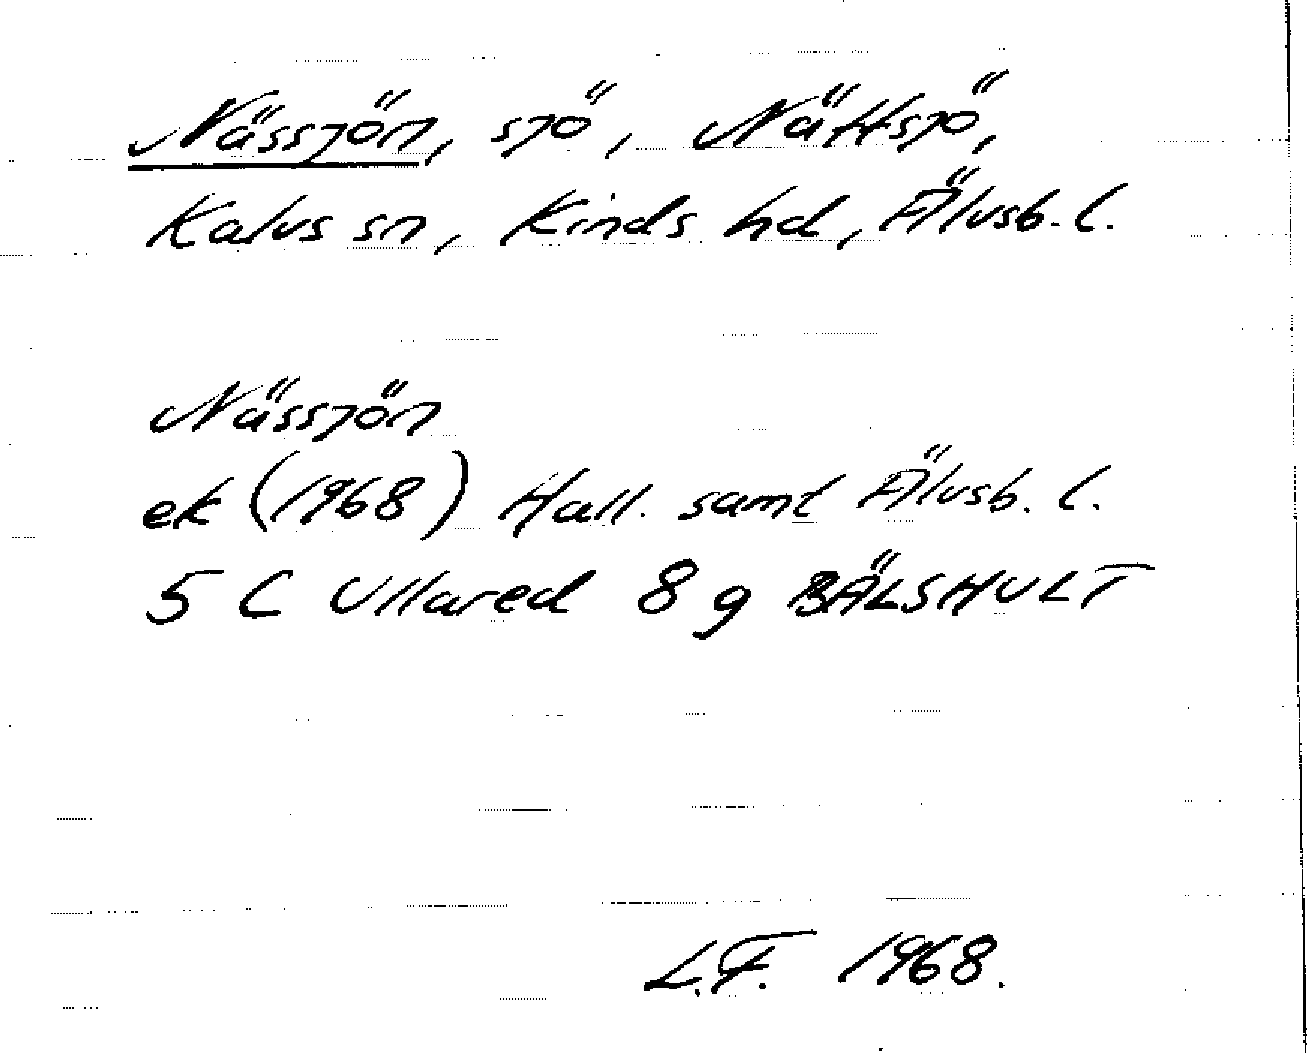 Nässjön, sjö, Nättsjö,
Kalvs sn, Kinds hd, Älvsb. l.
Nässjön
ek (1968) Hall. samt Älvsb. l.
5 C Ullared 8 g BÄLSHULT
L.F. 1968.